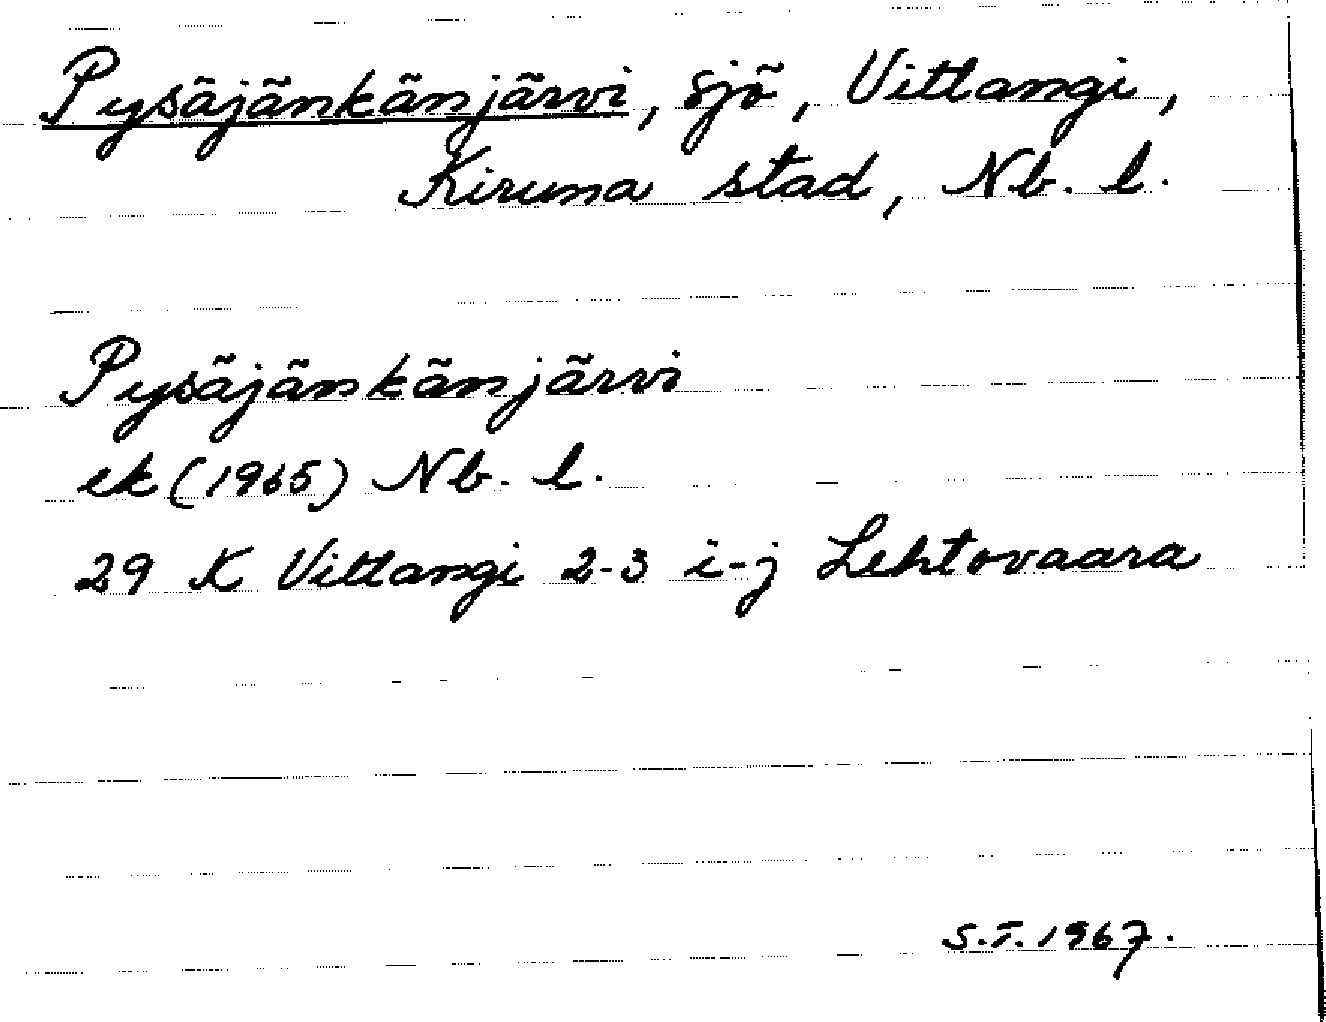 Pysäjänkänjärvi, sjö, Vittangi,
Kiruna stad, Nb. l.
Pysäjänkänjärvi
ek (1965) Nb. l.
29 K Vittangi 2-3 i-j Lehtovaara
S.T. 1967.